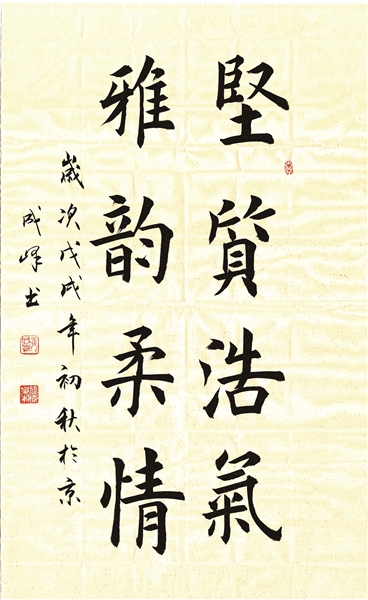 堅質浩氣
雅韵柔情
歲次戊戌年初秋於京
成峰书